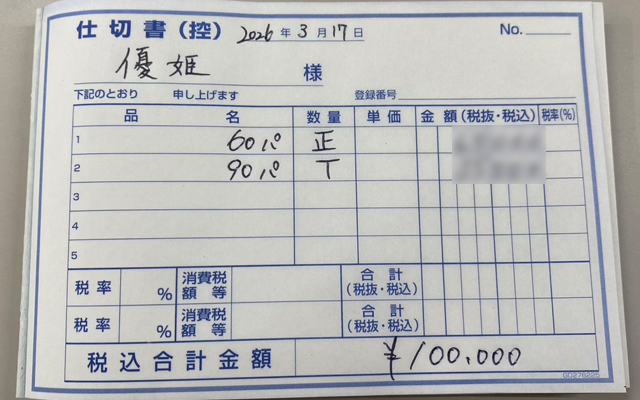 仕切書(控) 2026年3月17日 No.
優姫 様
下記のとおり 申し上げます 登録番号
品名 数量 単価 金額(税抜・税込) 税率(%)
1 60パ 正
2 90パ T
3
4
5
税率 % 消費税額等 合計(税抜・税込)
税率 % 消費税額等 合計(税抜・税込)
税込合計金額 ¥100,000